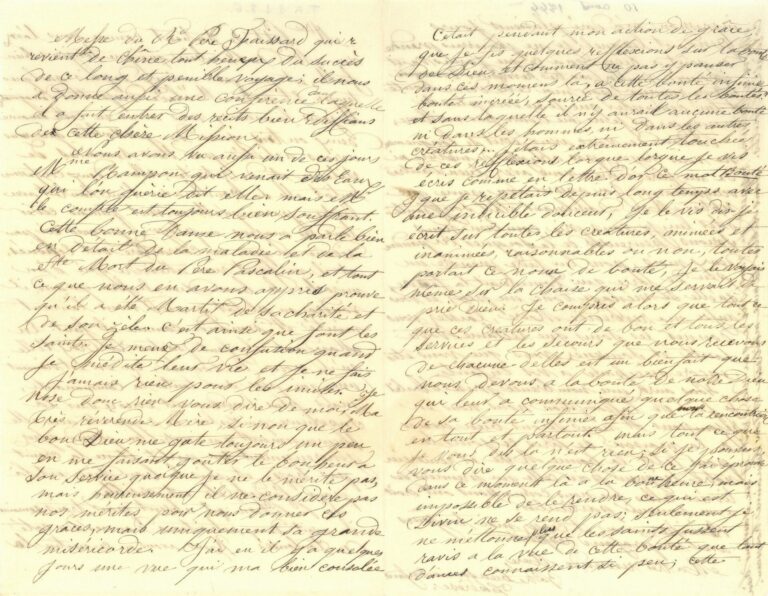 Messe du Rd Père qui
revient de Chine tout heureux du succès
de ce long et penible voyage; il nous
a donné aussi une conférence dans laquelle
il a fait entrer des recits bien interessans
de cette chère Mission.
Nous avons vu aussi un de ces jours
Mme Rampon qui venait des Eaux
qui l'on guérie dit elle, mais Mr
le compte est toujours bien souffrant.
Cette bonne Dame nous a parlé bien
en détail de la maladie et de la
Ste Mort du Père Pascalin, et tout
ce que nous en avons appris prouve
qu'il a été Martir de sa charité et
de son zèle. C'est ainsi que font les
saints. Je meurs de confusion quand
je medite leur vie et je ne fais
jamais rien pour les imiter. Je
nose donc rien vous dire de moi Ma
très révérende Mère, si non que le
bon Dieu me gate toujours un peu
en me faisant gouter le bonheur a
son service quoique je ne le mérite pas,
mais heureusement il ne considère pas
nos mérites pour nous donner ces
graces, mais uniquement sa grande
miséricorde. J'ai eu il y a quelques
jours une vue qui ma bien consolée
10 1844
C'était pendant mon action de grâce,
que je fis quelques reflexions sur la bonté
de Dieu et comment ne pas y penser
dans ces momens là, a cette bonté infinie
bonté increée, source de toutes les bontés
et sans laquelle il n'y aurait aucune bonté
ni dans les hommes, ni dans les autres
créatures... J'étais extremement touchée
de ces reflexions lorque lorque je vis
écris comme en lettre d'or ce mot bonté
que je repetais depuis long temps avec
une indicible douceur, je le vis dis-je
écrit sur toutes les créatures, animées et
inanimées, raisonnables ou non, toutes
portait ce nom de bonté, je le voyais
même sur la chaise qui me servait de
prie Dieu. Je compris alors que tout ce
que ces créatures ont de bon et tous les
services et les secours que nous recevons
de chacune d'elles est un bienfait que
nous devons a la bonté de notre Dieu
qui leur a communiqué quelque chose
de sa bonté infinie afin que nous la rencontrions
en tout et partout mais tout ce que
je vous dis là n'est rien; si je pouvais
vous dire quelque chose de ce que j'ai éprouvé
dans ce moment là a la bonne heure, mais
impossible de le rendre, ce qui est
divin ne se rend pas; seulement je
ne m'étonne plus que les saints fussent
ravis a la vue de cette bonté que tant
d'ames connaissent si peu; cette